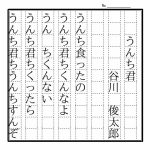 No.
うんち君
谷川 俊太郎
うんち食ったの
うんち君ちくんなよ
うん ちくんない
うんち君ちくったら
うんち君ちうんちすんぞ